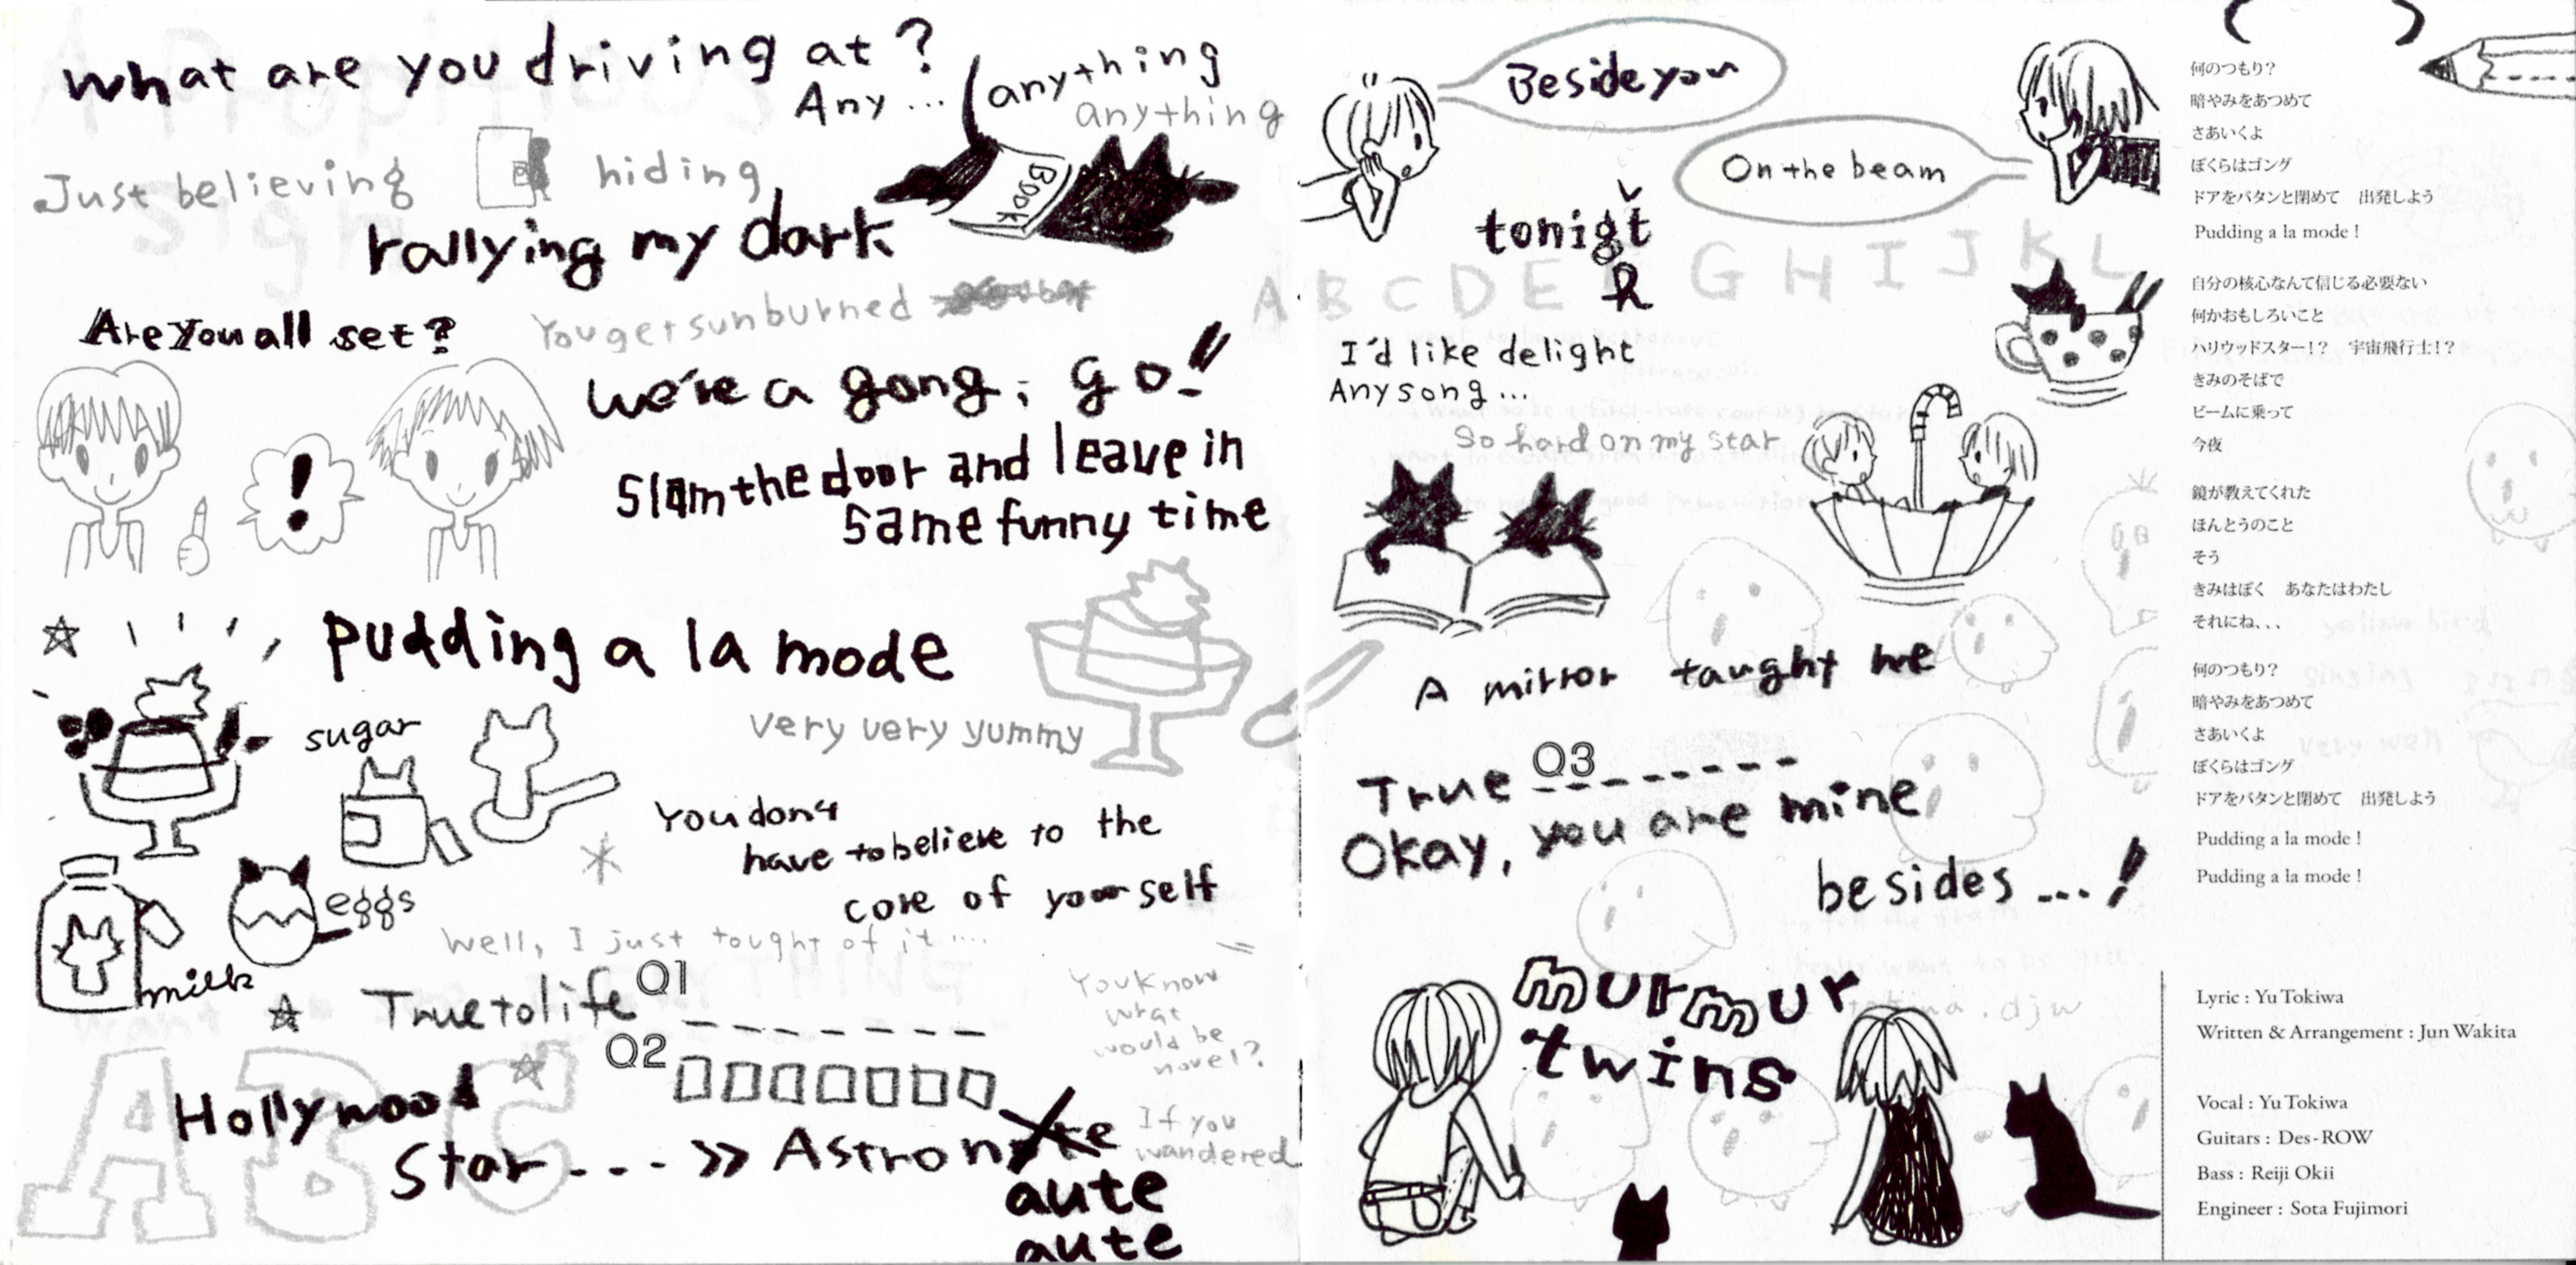 what are you driving at?
Any... anything
anything
Just believing hiding
BOOK
rallying my dark
Are you all set?
You get sunburned
we're a gong; go!!
!
Slam the door and leave in
same funny time
pudding a la mode
sugar
very very yummy
You don't
have to believe to the
core of yourself
eggs
milk
Well, I just tought of it....
True to life Q1 _ _ _ _ _ _ _
Q2 □□□□□□□
You know
what
would be
novel?
Hollywood
Star - - - >> Astron
aute
aute
If you
wandered
ABC
Beside you
On the beam
tonigt
h
A B C D E G H I J K L
I'd like delight
Any song...
So hard on my star
A mirror taught me
True Q3 _ _ _ _ _ _ _
Okay, you are mine
besides ...!
murmur
twins
何のつもり?
暗やみをあつめて
さあいくよ
ぼくらはゴング
ドアをバタンと閉めて 出発しよう
Pudding a la mode !
自分の核心なんて信じる必要ない
何かおもしろいこと
ハリウッドスター!? 宇宙飛行士!?
きみのそばで
ビームに乗って
今夜
鏡が教えてくれた
ほんとうのこと
そう
きみはぼく あなたはわたし
それにね、、、
何のつもり?
暗やみをあつめて
さあいくよ
ぼくらはゴング
ドアをバタンと閉めて 出発しよう
Pudding a la mode !
Pudding a la mode !
Lyric : Yu Tokiwa
Written & Arrangement : Jun Wakita
Vocal : Yu Tokiwa
Guitars : Des-ROW
Bass : Reiji Okii
Engineer : Sota Fujimori